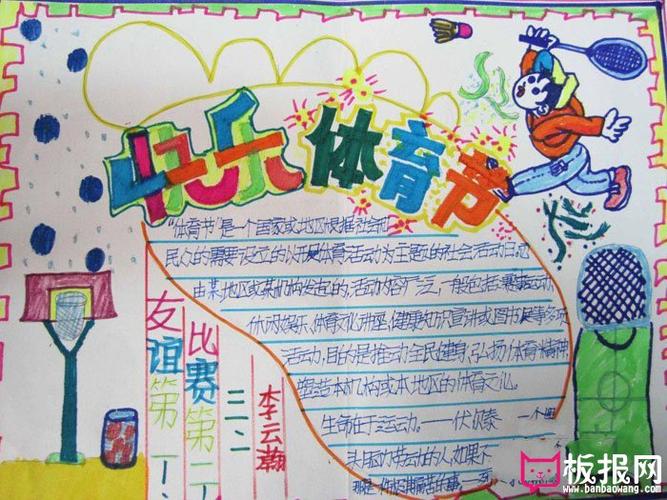 快乐体育节
"体育节"是一个国家或地区根据社会和
民众的需要设立的以开展体育活动为主题的社会活动日。
由某地区或某机构发起的,活动内容广泛,一般包括:竞技运动、
休闲娱乐、体育文化讲座、健康知识宣讲或图书展等多项
活动,目的是推动全民健身,弘扬体育精神,
塑造本机构或本地区的体育文化。
生命在于运动。——伏尔泰 一个
头脑劳动的人,如果不
友谊第一
比赛第二
三、二
李云瀚
板报网
www.banbaowang.com